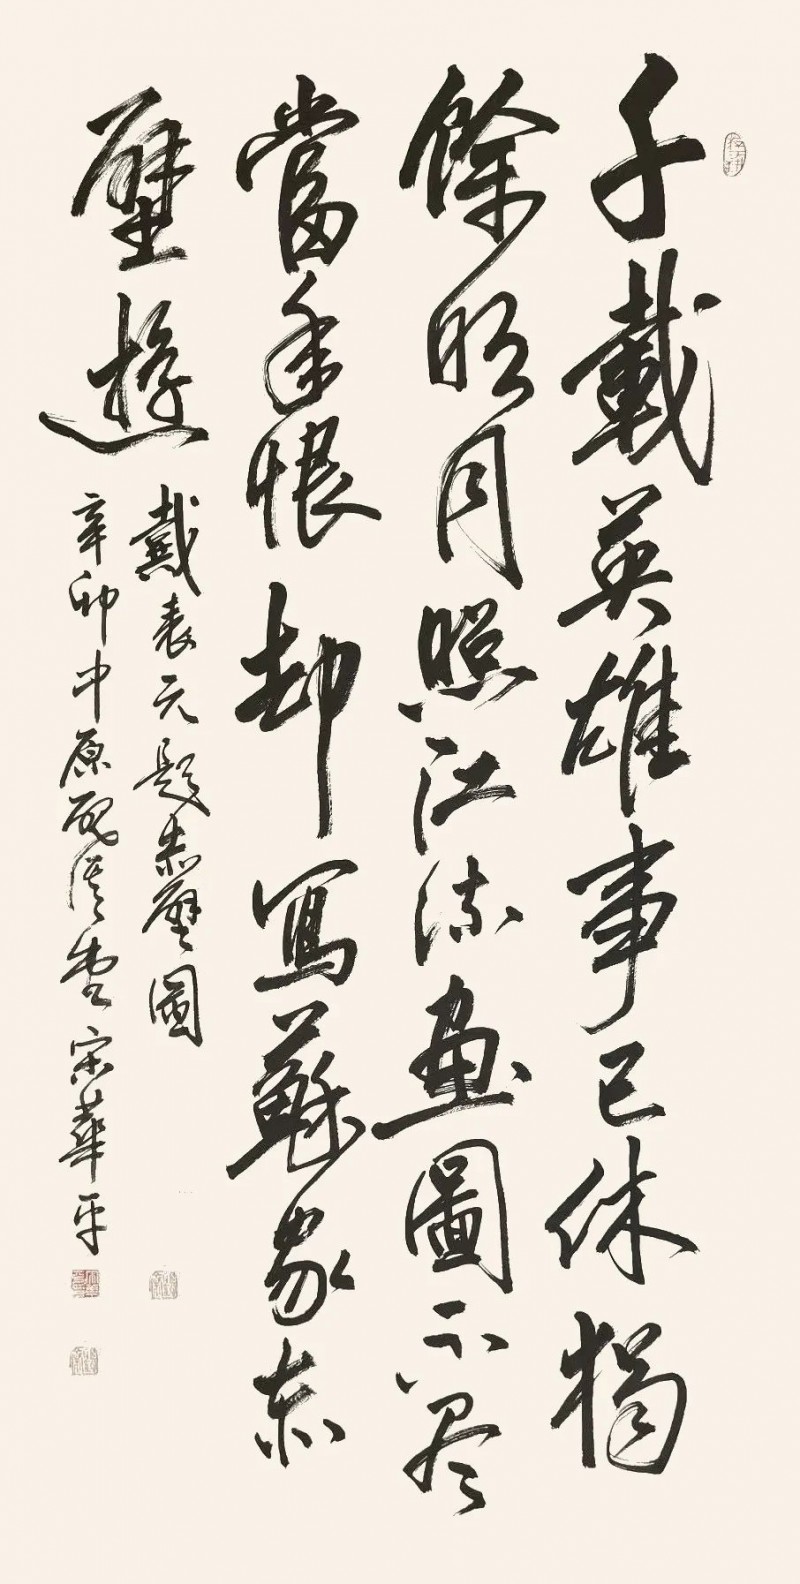 千載英雄事已休獨
餘明月照江流画圖不尽
當年恨却寫蘇家赤
壁遊
戴表元題赤壁圖
辛卯中原酔漢書宋華平